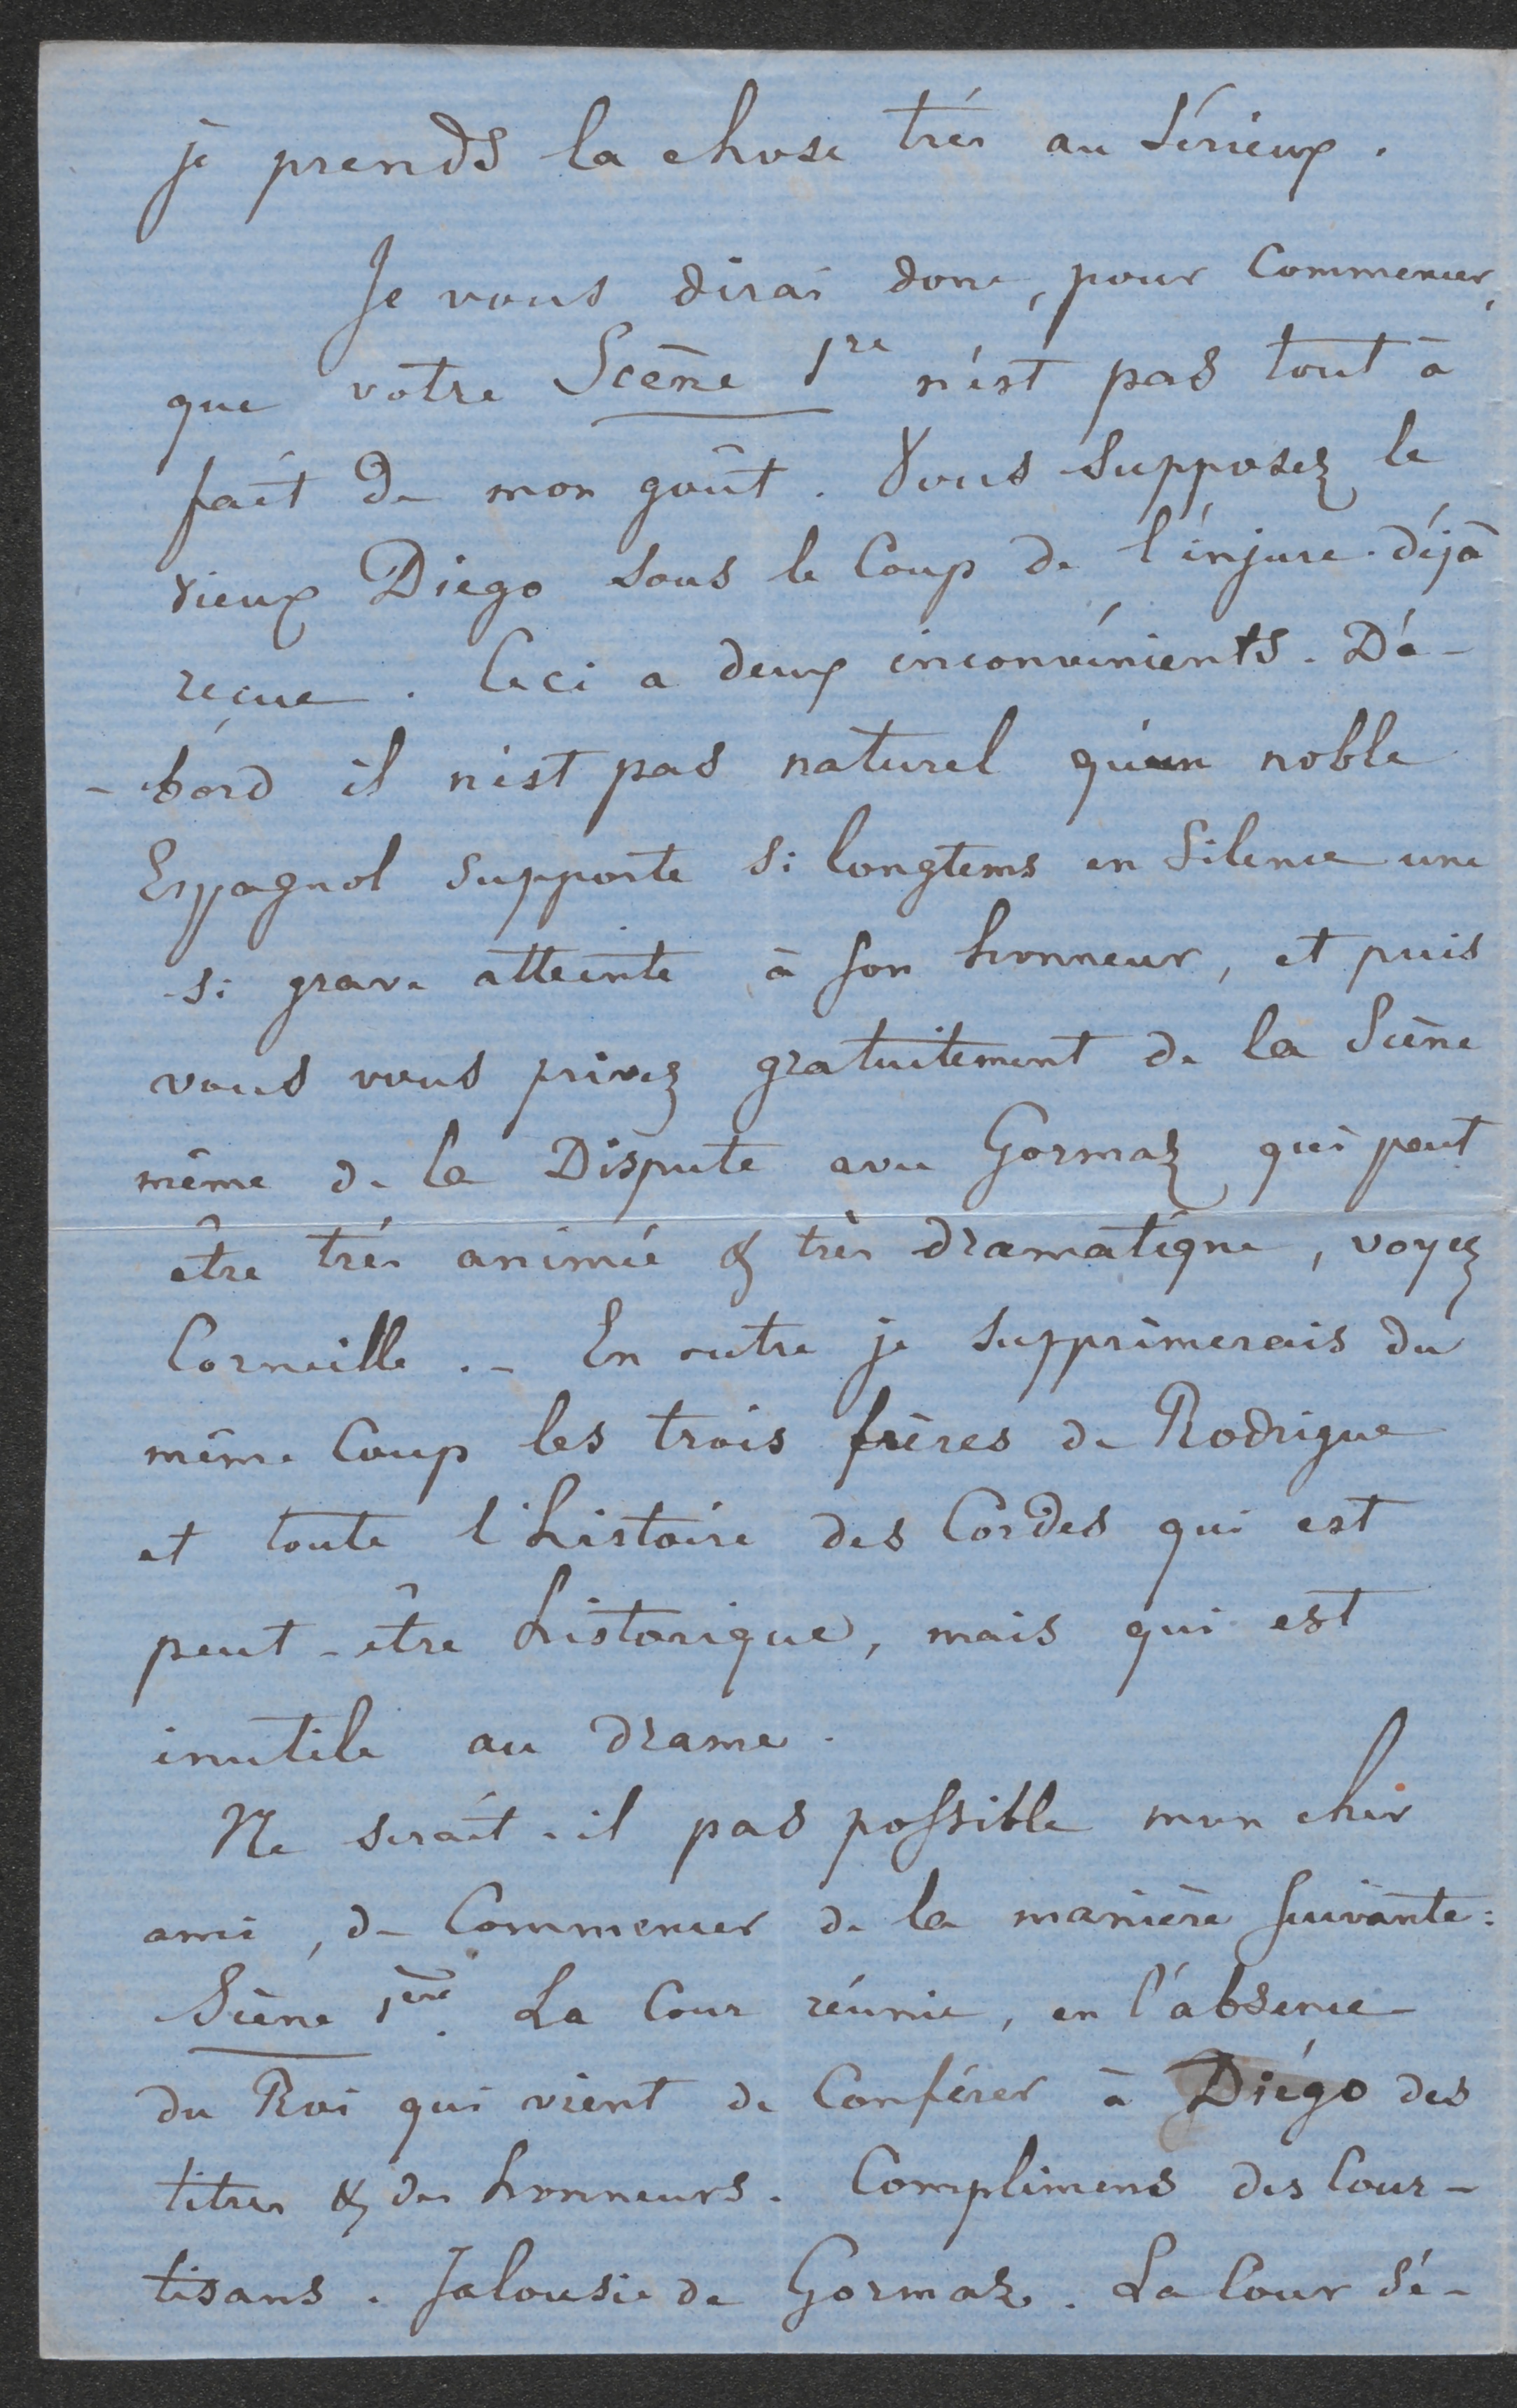 je prends la chose très au Sérieux.
Je vous dirai donc, pour Commencer,
que votre Scène 1re n'est pas tout à
fait de mon goût. Vous Supposez le
vieux Diego sous le Coup de l'injure déjà
reçue. Ceci a deux inconvénients. D'a-
-bord il n'est pas naturel qu'un noble
Espagnol Supporte Si longtems en Silence une
si grave atteinte à son honneur, et puis
vous vous privez gratuitement de la Scène
même de la Dispute avec Gormaz qui peut
être très animée & très dramatique, voyez
Corneille. - En outre je Supprimerais du
même Coup les trois frères de Rodrigue
et toute l'histoire des Cordes qui est
peut-être historique, mais qui est
inutile au drame.
Ne serait-il pas possible mon cher
ami, de Commencer de la manière Suivante:
Scène 1ère. La Cour réunie, en l'absence
du Roi qui vient de Conférer à Diégo des
titres & des honneurs. Complimens des Cour-
tisans. Jalousie de Gormaz. La Cour Sé-